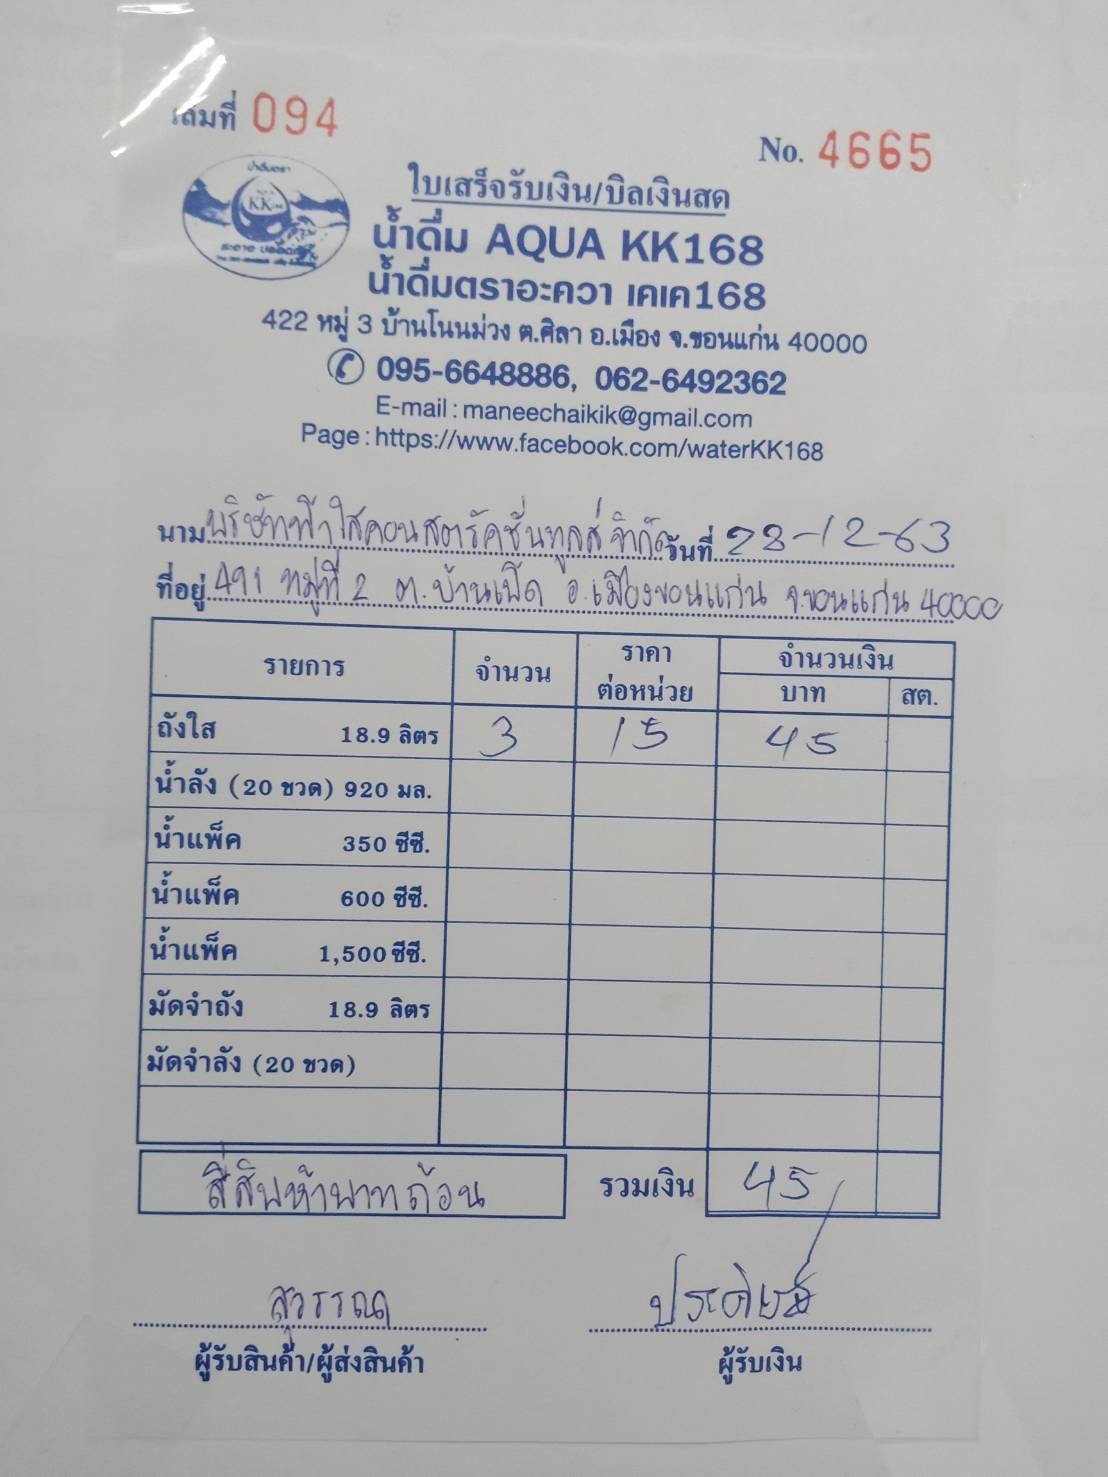 เล่มที่ 094
No. 4665
น้ำดื่มตรา
KK
ใบเสร็จรับเงิน/บิลเงินสด
น้ำดื่ม AQUA KK168
น้ำดื่มตราอะควา เคเค168
422 หมู่ 3 บ้านโนนม่วง ต.ศิลา อ.เมือง จ.ขอนแก่น 40000
095-6648886, 062-6492362
E-mail : maneechaikik@gmail.com
Page : https://www.facebook.com/waterKK168
นาม บริษัทฟ้าใสคอนสตรัคชั่นทูลส์ จำกัด วันที่ 28-12-63
ที่อยู่ 491 หมู่ที่ 2 ต.บ้านเป็ด อ.เมืองขอนแก่น จ.ขอนแก่น 40000
รายการ จำนวน ราคา ต่อหน่วย จำนวนเงิน
บาท สต.
ถังใส 18.9 ลิตร 3 15 45
น้ำลัง (20 ขวด) 920 มล.
น้ำแพ็ค 350 ซีซี.
น้ำแพ็ค 600 ซีซี.
น้ำแพ็ค 1,500 ซีซี.
มัดจำถัง 18.9 ลิตร
มัดจำลัง (20 ขวด)
สี่สิบห้าบาทถ้วน รวมเงิน 45
สุวรรณ ประดิษฐ์
ผู้รับสินค้า/ผู้ส่งสินค้า ผู้รับเงิน